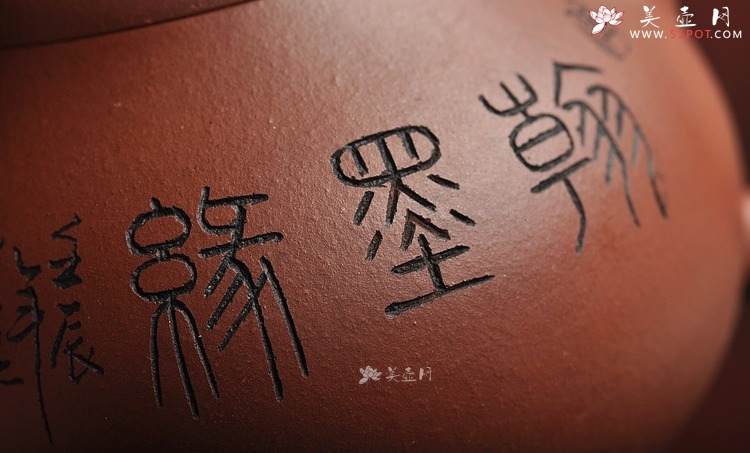 美壶网
WWW.52POT.COM
翰墨緣
壬辰
年
美壶网